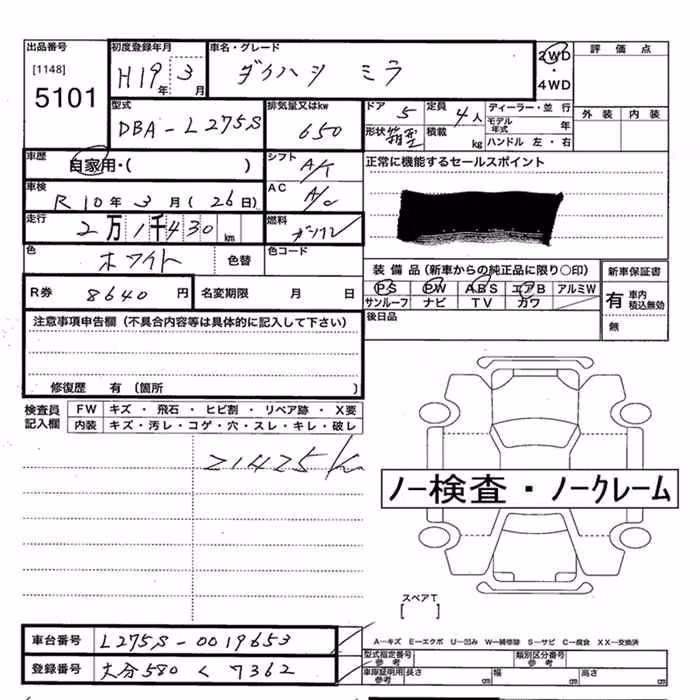 出品番号 初度登録年月 車名・グレード 評価点
[1148] 5101 H19年 3月 ダイハツ ミラ 2WD・4WD 外装 内装
型式 DBA-L275S 排気量又はkw 650 ドア 5 定員 4人 ディーラー・並行
形状 箱型 積載 kg モデル年式 年
ハンドル 左・右
車歴 自家用・( ) シフト A/T 正常に機能するセールスポイント
車検 R10年 3月 (26日) AC A/C
走行 2万1千430km 燃料 ガソリン
色 ホワイト 色替 色コード
R券 8640円 名変期限 月 日
装備品(新車からの純正品に限り○印) 新車保証書
PS PW ABS エアB アルミW 有 車内 積込無効
サンルーフ ナビ TV カワ 無
後日品
注意事項申告欄(不具合内容等は具体的に記入して下さい)
修復歴 有(箇所 )
検査員記入欄 FW キズ・飛石・ヒビ割・リペア跡・X要
内装 キズ・汚レ・コゲ・穴・スレ・キレ・破レ
21425km
ノー検査・ノークレーム
スペアT
[ ]
車台番号 L275S-0019653
登録番号 大分580 く 7362
A-キズ E-エクボ U-凹み W-補修跡 S-サビ C-腐食 XX-交換済
型式指定番号 参考 類別区分番号 参考
車庫証明用 参考 長さ cm 幅 cm 高さ cm